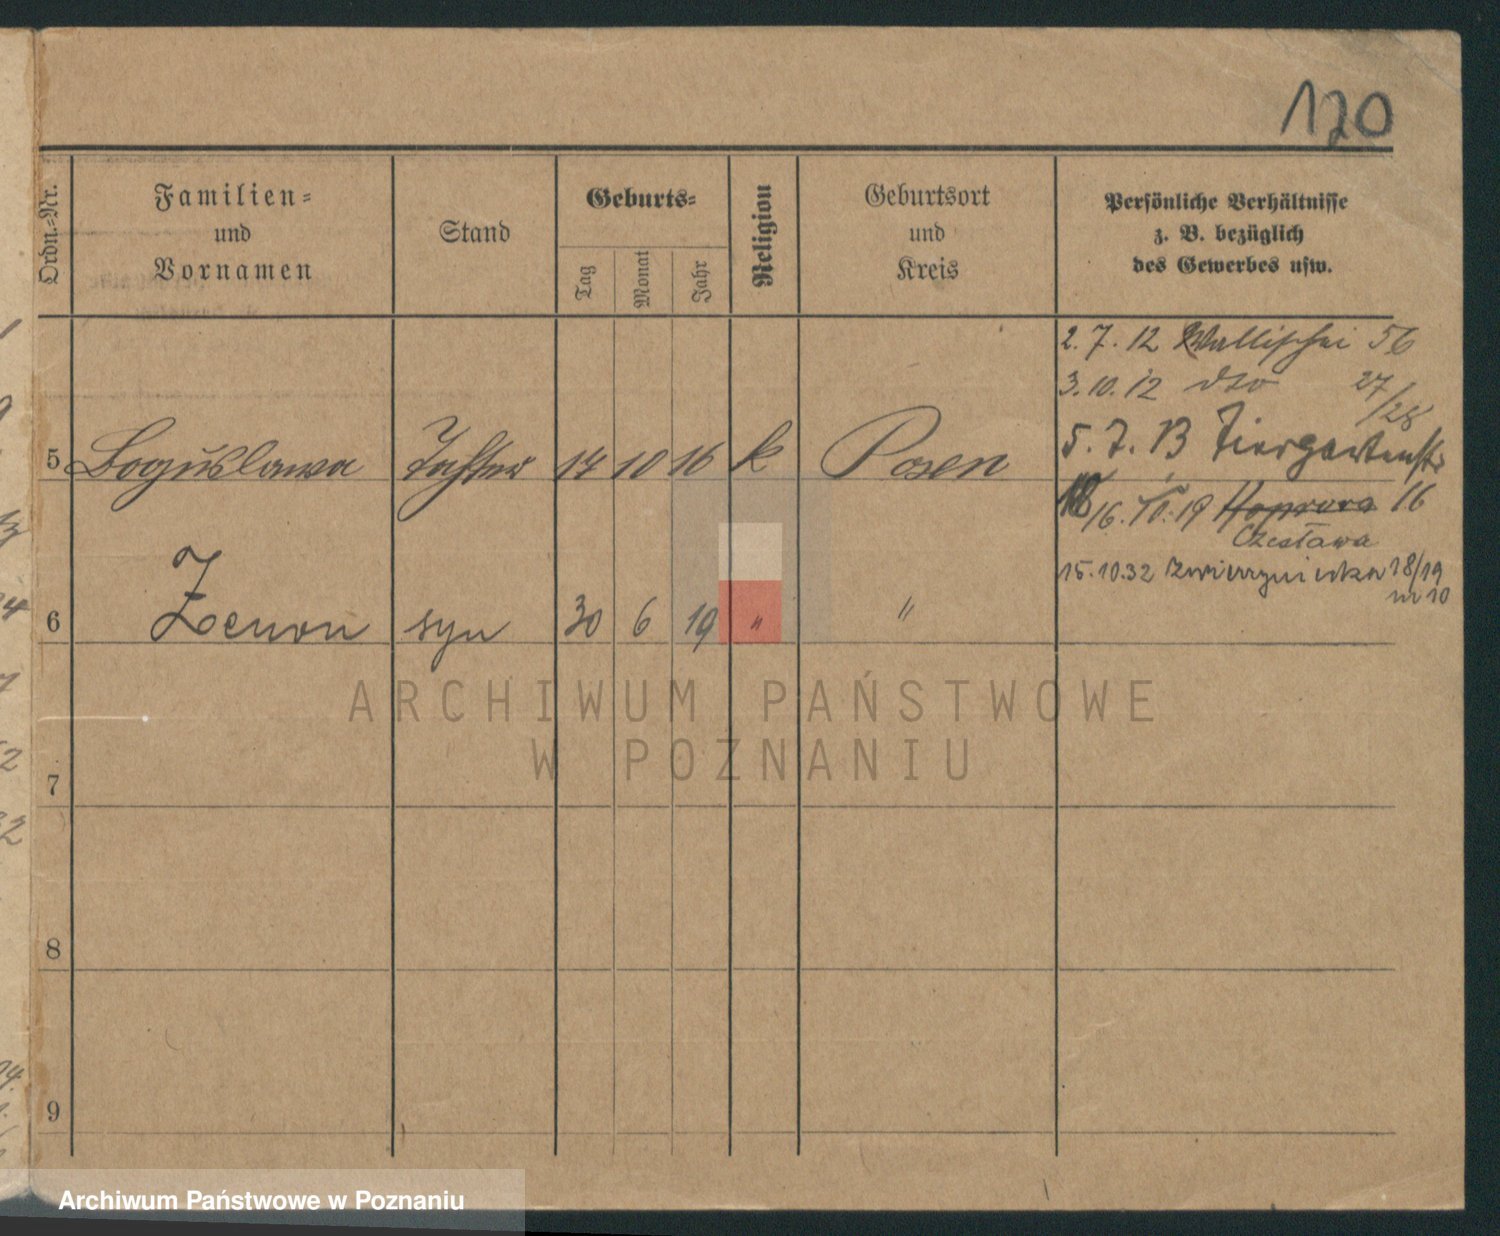 120
Ordn.=Nr.
Familien=
und
Vornamen
Stand
Geburts=
Tag
Monat
Jahr
Religion
Geburtsort
und
Kreis
Persönliche Verhältnisse
z. B. bezüglich
des Gewerbes usw.
2.7.12 Wallischei 56
3.10.12 dto 27/28
5.7.13 Tiergartenstr
5 Boguslawa Tochter 14 10 16 k Posen
16. 10.19 16
Czesława
15.10.32 18/19
m 10
6 Zenon syn 30 6 19 " "
7
8
9
ARCHIWUM PAŃSTWOWE
W POZNANIU
Archiwum Państwowe w Poznaniu